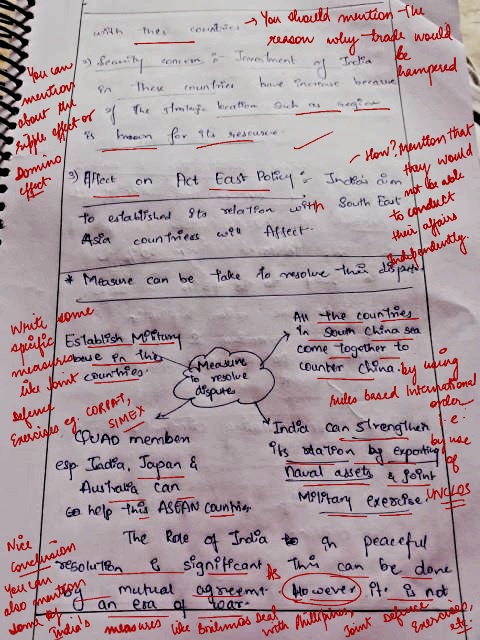 with these countries
→ You should mention the
reason why trade would
be
hampered
2) Security concern :- Investment of India
in these countries have increase because
of the strategic location such as region
is known for its resource.
You can
mention
about the
ripple effect or
Domino
effect
3) Affect on Act East Policy :- India's aim
to established its relation with South East
Asia countries will Affect.
- How? Mention that
they would
not be able
to conduct
their affairs
Independently.
* Measure can be take to resolve this dispute.
Write some
specific
measures
like Joint
Defence
Exercises eg. CORPAT,
SIMEX
Establish Military
base in the
countries.
All the countries
in South China sea
come together to
counter China. by using
rules based International
order
i.e.
by use
of
UNCLOS
Measure
to resolve
dispute
QUAD member
esp India, Japan &
Australia can
help this ASEAN countries.
India can strengthen
its relation by exporting
Naval assets & joint
Military exercise.
The Role of India in peaceful
resolution is significant As This can be done
by mutual agreement. However it is not
an era of war.
Nice
conclusion
You can
also mention
some of
India's measures like Brahmos Deal
with Philippines, Joint Defence Exercises,
etc.